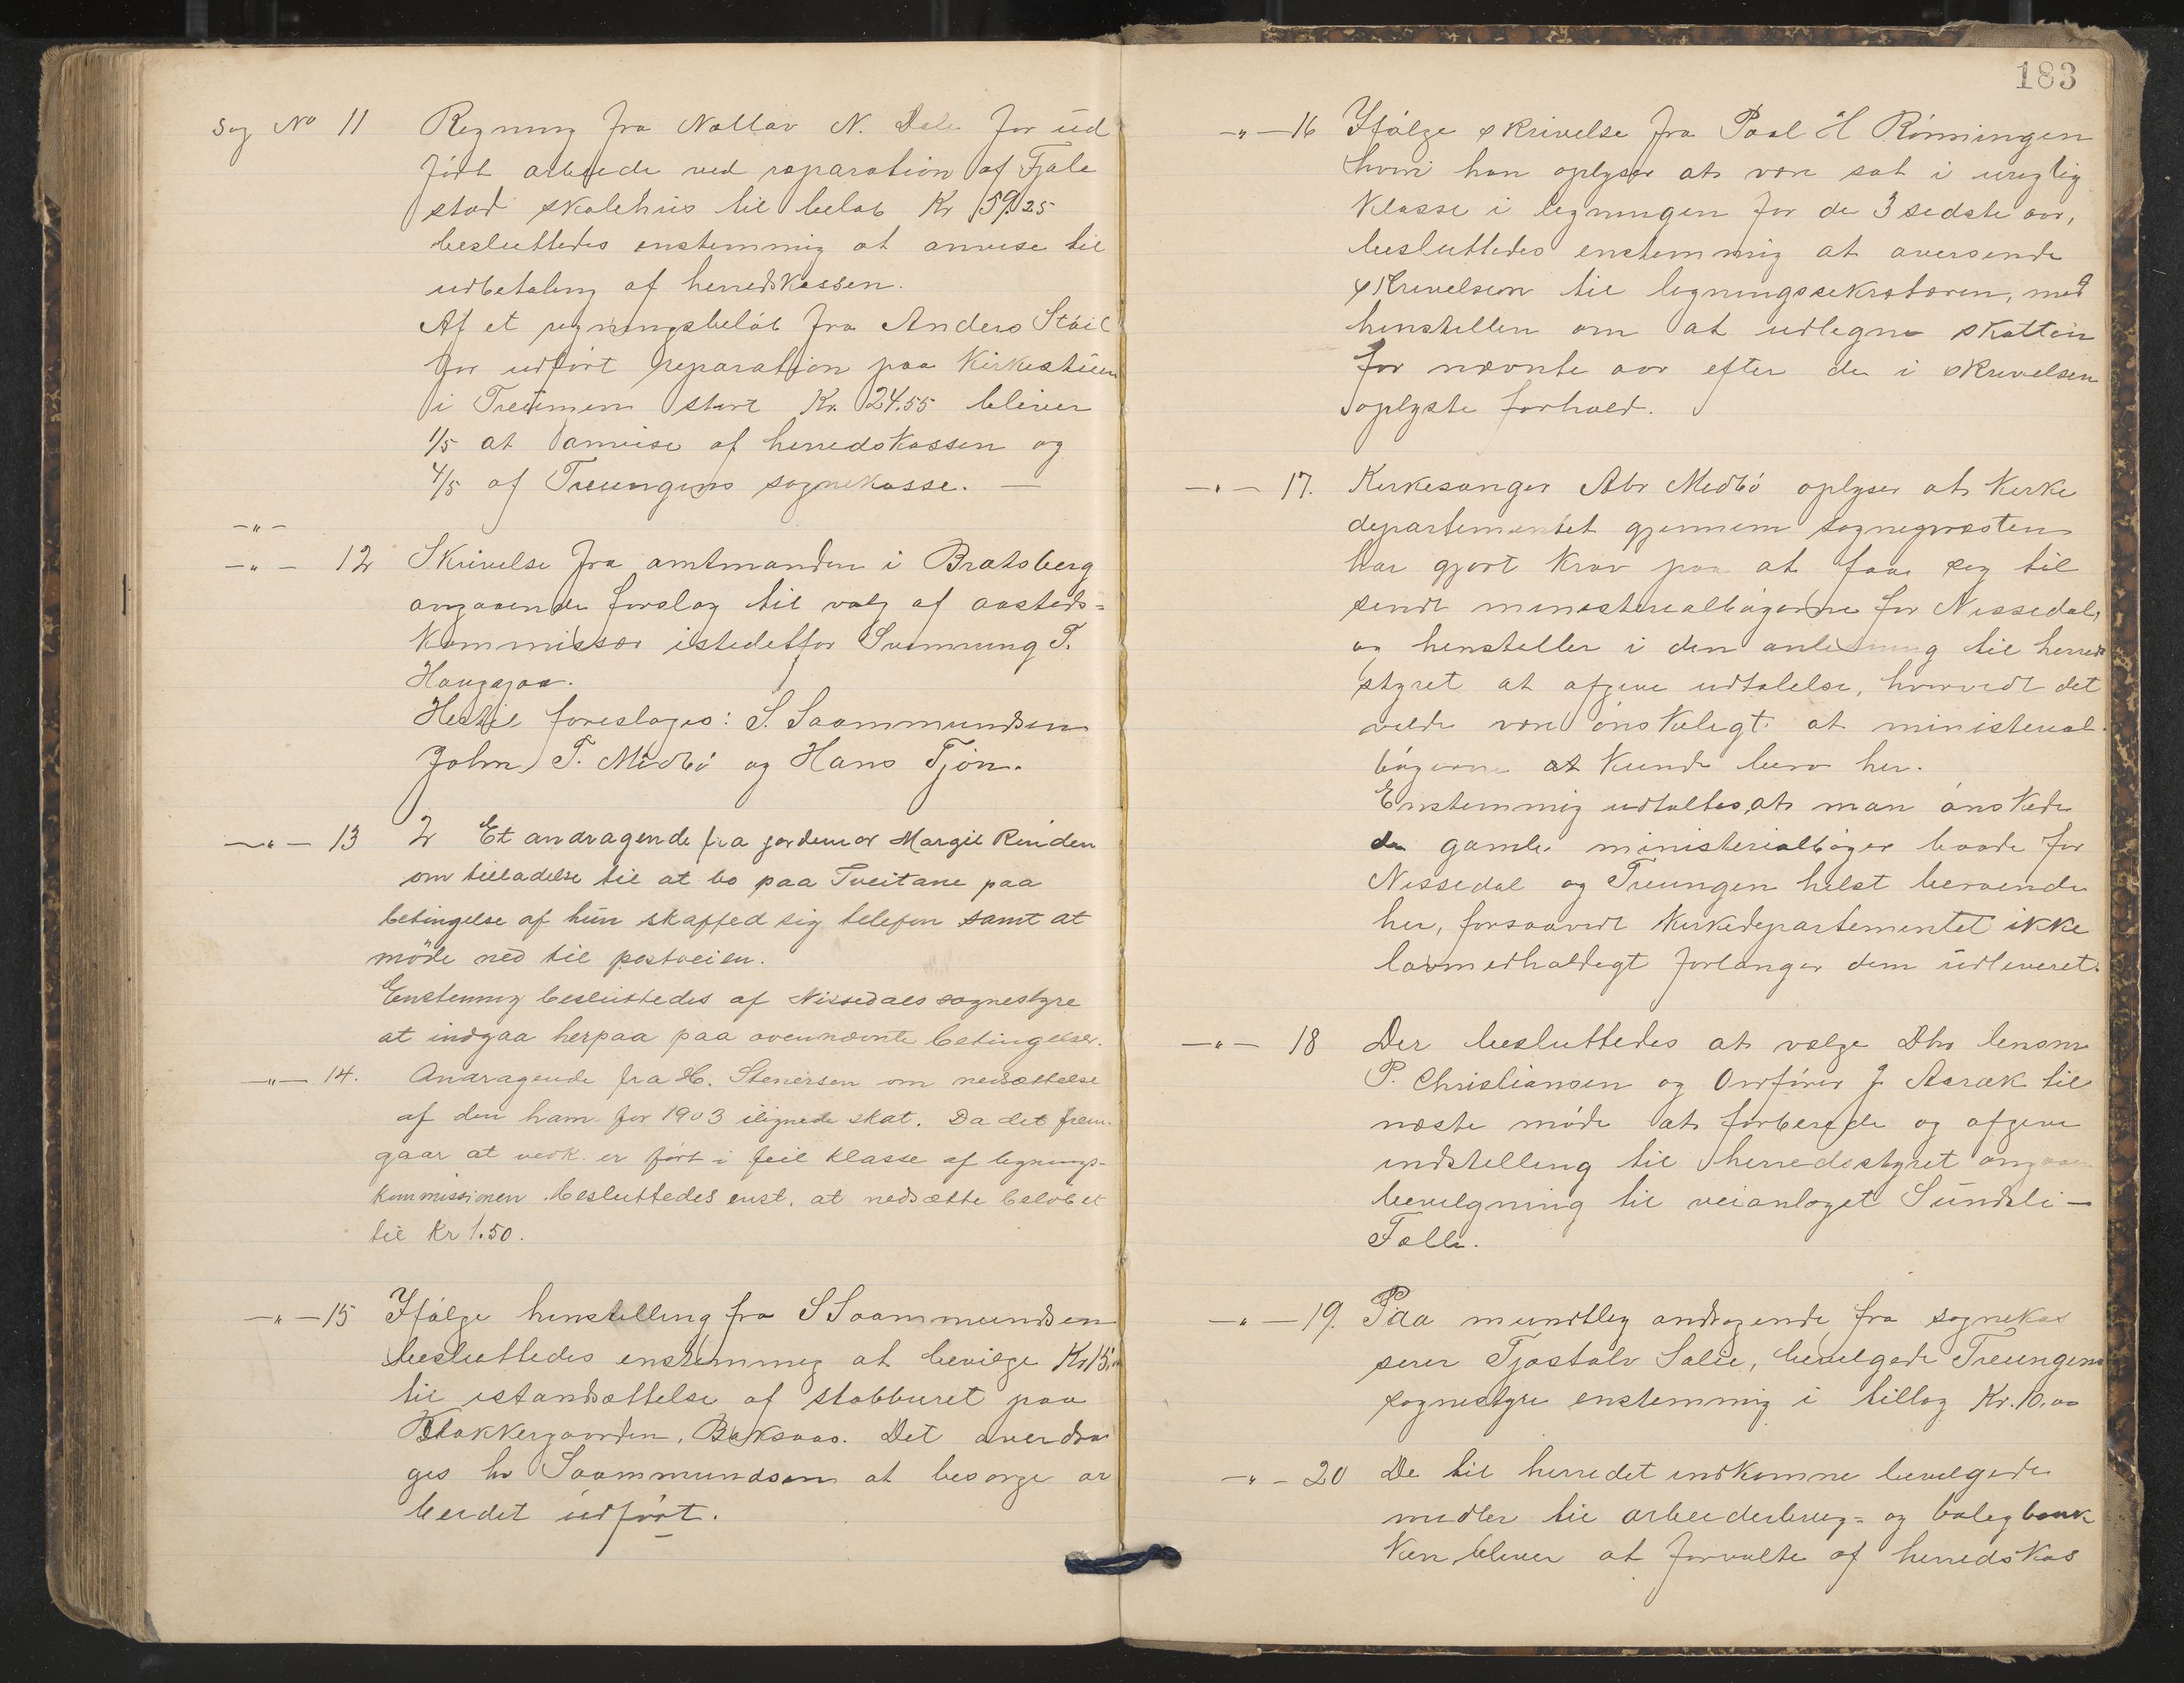 Sag No 11 Regning fra Nottov N. Dale for ud
ført arbeide ved reparation af Fjale
stad skolehus til beløb Kr 59.25
besluttedes enstemmig at anvise til
udbetaling af herredskassen.
Af et regningsbeløb fra Anders
for udført reparation paa Kirkestuen
i Treungen stort Kr. 24.55 bliver
1/5 at anvise af herredskassen og
4/5 af Treungens sognekasse. —
—"—
—"— 12 Skrivelse fra amtmanden i Bratsberg
angaaende forslag til valg af aasteds=
kommissær istedetfor Svenung T.
Haugsjaa.
Hertil foresloges: S. Saammundsen
John T. Midbø og Hans Tjøn.
—"— 13 Et andragende fra jordemor Margit Rinden
om tilladelse til at bo paa Tveitane paa
betingelse af hun skaffed sig telefon samt at
møde ned til postveien.
Enstemmig besluttedes af Nissedals sognestyre
at indgaa herpaa paa ovennævnte betingelser.
—"— 14. Andragende fra H. Stenersen om nedsættelse
af den ham for 1903 ilignede skat. Da det frem-
gaar at vedk. er ført i feil klasse af ligningskommissionen
besluttedes enst. at nedsætte beløbet
til Kr 1.50.
—"— 15 Ifølge henstilling fra S Saammundsen
besluttedes enstemmig at bevilge Kr 15.
til istandsættelse af stabburet paa
Klokkergaarden, Baksaas. Det overdra
ges hr Saammundsen at besørge ar
beidet udført.
183
—"— 16 Ifølge skrivelse fra Paal H Rönningen
hvori han oplyser at være sat i urigtig
klasse i ligningen for de 3 sidste aar,
besluttedes enstemmig at oversende
skrivelsen til ligningssekretæren, med
henstillen om at udlegne skatten
for nævnte aar efter de i skrivelsen
oplyste forhold.
—"— 17. Kirkesanger Abr Midbö oplyser at kirke
departementet gjennem sognepræsten
har gjort krav paa at faa sig til
sendt ministerialbøgerne for Nissedal,
og henstiller i den anledning til herreds
styret at afgive udtalelse, hvorvidt det
vilde være önskeligt at ministerial
bøgerne at kunde bero her.
Enstemmig udtaltes, at man önskede
de gamle ministerialbøger baade for
Nissedal og Treungen helst beroende
her, forsaavidt kirkedepartementet ikke
lovmedholdigt forlanger dem udleveret.
—"— 18 Der besluttedes at vælge Dhr lensm
P. Christiansen og Ordfører J. Aasræk til
næste møde at forberede og afgive
indstilling til herredsstyret angaaen
bevilgning til veianlæget Sundsli —
Fælle.
—"— 19. Paa mundtlig andragende fra sognekas
serer Tjøstolv Solli, bevilgede Treungens
sognestyre enstemmig i tillæg Kr. 10.00
—"— 20 De til herredet indkomne bevilgede
midler til arbeiderbrug= og boligbank
ken bliver at forvalte af herredskas